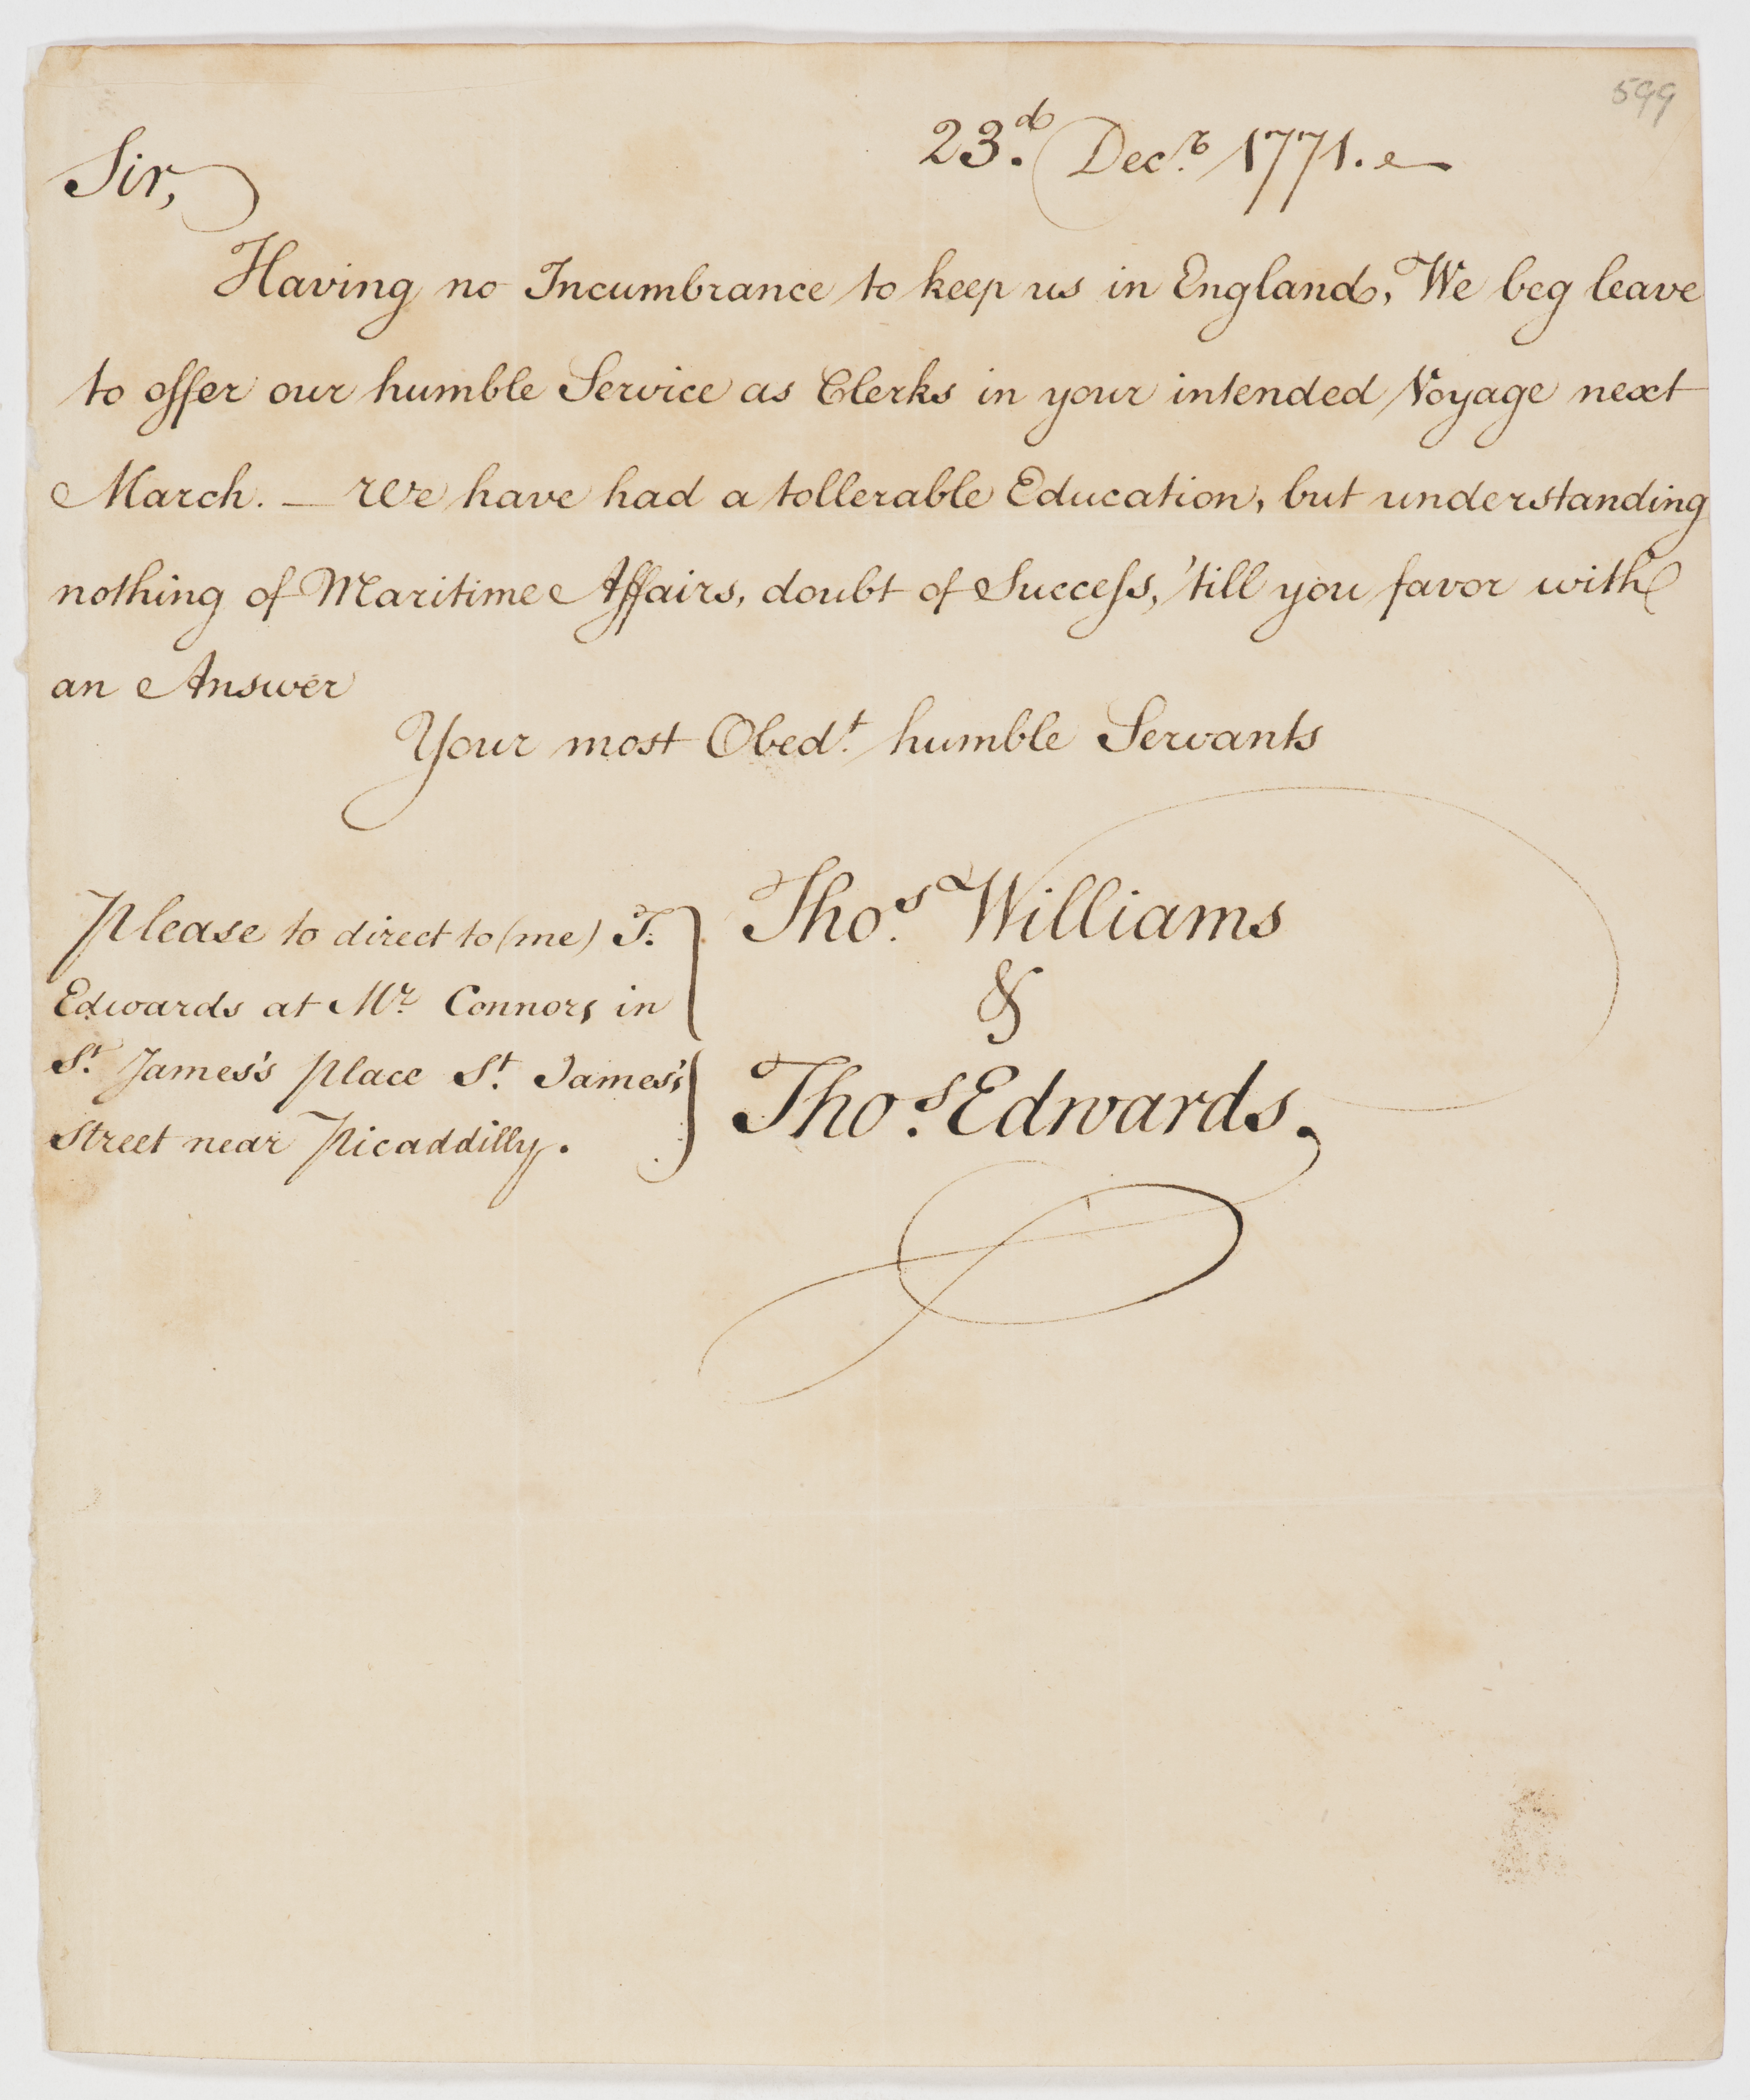 599
23.d Decr. 1771.
Sir,
Having no Incumbrance to keep us in England, We beg leave
to offer our humble Service as Clerks in your intended Voyage next
March. — We have had a tollerable Education, but understanding
nothing of Maritime Affairs, doubt of Succeſs, 'till you favor with
an Answer
Your most Obedt. humble Servants
Thos. Williams
&
Thos. Edwards.
Please to direct to (me) T.
Edwards at Mr. Connors in
St. James's place St. James's
Street near Picaddilly.